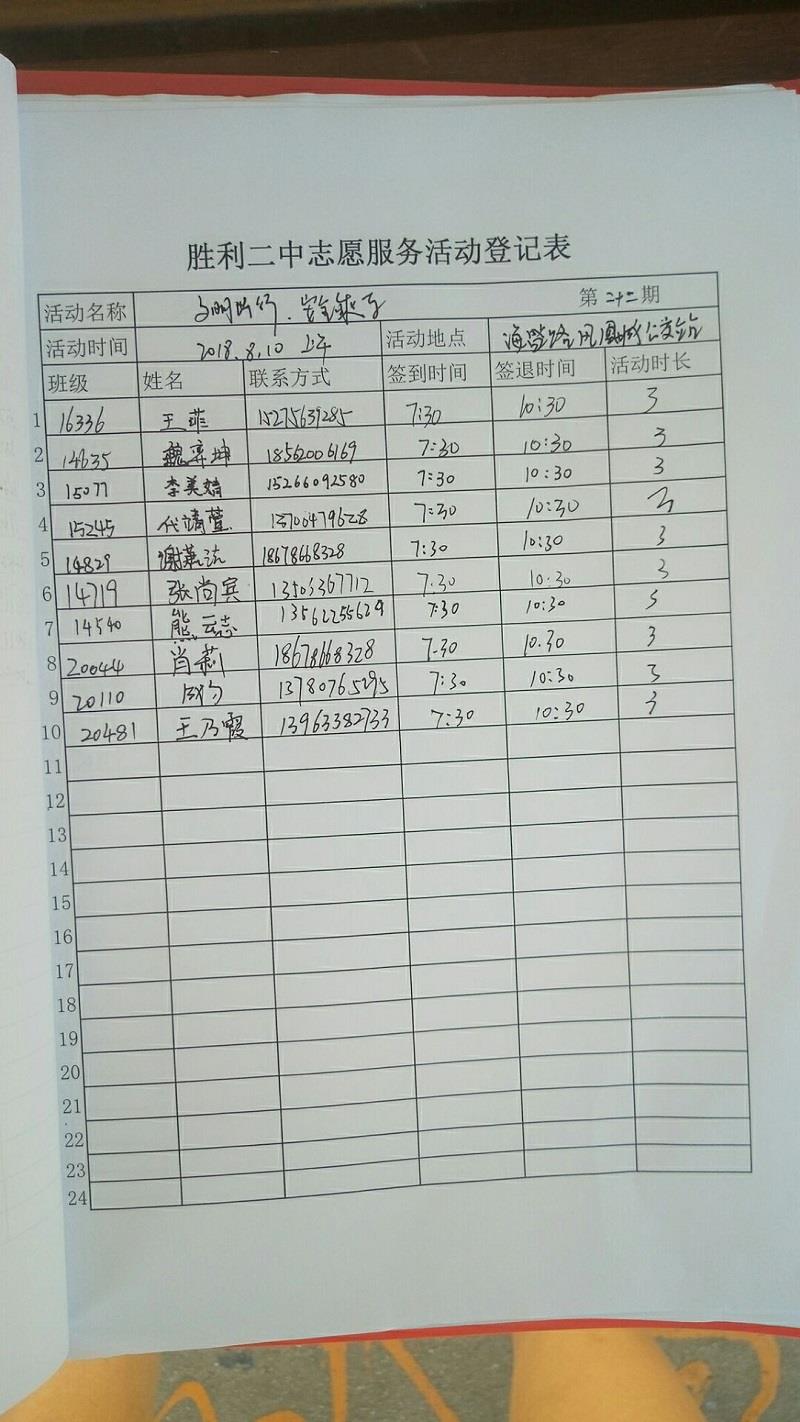 胜利二中志愿服务活动登记表
活动名称 文明出行.安全乘车 第二十二期
活动时间 2018.8.10 上午 活动地点 凤凰城公交站
班级 姓名 联系方式 签到时间 签退时间 活动时长
1 16336 王菲 15275639285 7:30 10:30 3
2 14635 魏坤 18562006169 7:30 10:30 3
3 15077 李美婧 15266092580 7:30 10:30 3
4 15245 代婧萱 13706479628 7:30 10:30 3
5 14829 谢 18678668328 7:30 10:30 3
6 14719 张尚宾 13505367712 7.30 10.30 3
7 14540 熊云志 13562255629 7:30 10:30 3
8 20044 肖莉 18678668328 7.30 10.30 3
9 20110 13780765295 7:30 10:30 3
10 20481 王乃霞 13963382733 7:30 10:30 3
11
12
13
14
15
16
17
18
19
20
21
22
23
24